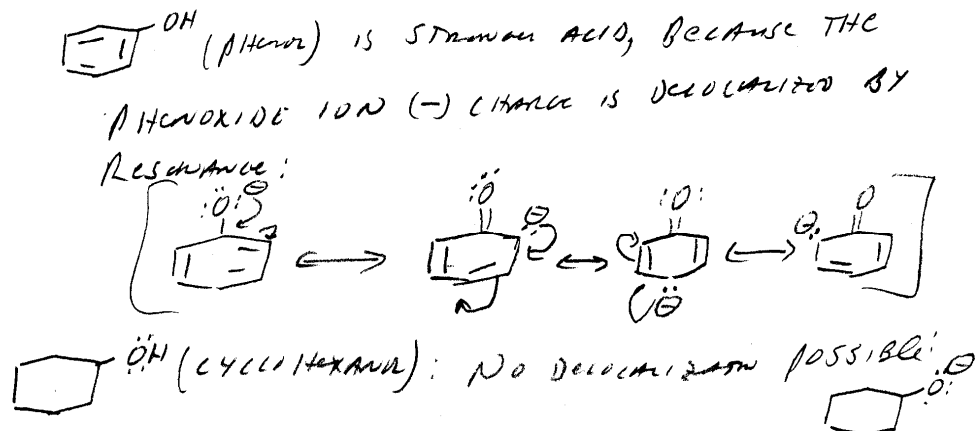 OH (phenol) is stronger acid, because the
phenoxide ion (–) charge is delocalized by
Resonance:
:Ö:⊖ :O: ⊖ :O: ⊖ O ⊖
ÖH (cyclohexanol): No delocalization possible: O:⊖